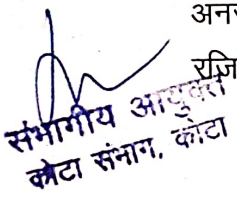 अनु
रजि
संभागीय आयुक्त
कोटा संभाग, कोटा